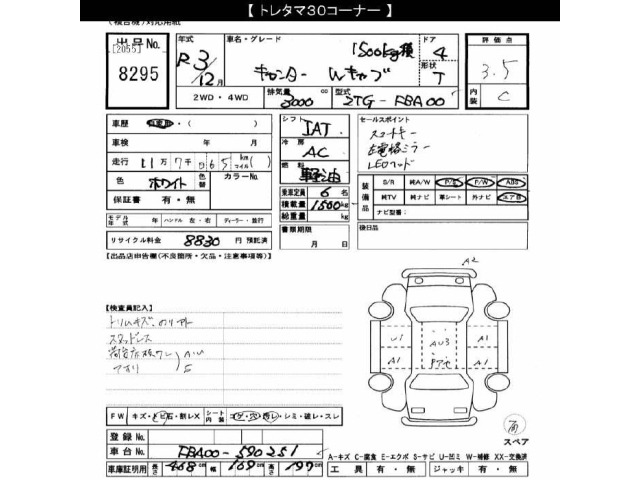 【 トレタマ30コーナー 】
(複合機)対応用紙
出品No.
[2055]
8295
年式
R3/12月
車名・グレード
1500kg積
キャンター Wキャブ
ドア
4
形状
T
2WD・4WD
排気量
3000 cc
型式
2TG-FBA00
評価点
3.5
内装
C
車歴 自家用・( )
車検 年 月
走行 11万7千065km マイル( )
色 ホワイト 色替 カラーNo.
保証書 有・無
シフト
IAT
冷房
AC
燃料
軽油
乗車定員 6 名
積載量 1500 kg
総重量 kg
セールスポイント
スマートキー
左電格ミラー
LEDヘッド
装備品
S/R 純A/W P/S P/W ABS
純TV 純ナビ 革シート 外ナビ エアB
ナビ型番:
モデル年式 年 ハンドル 左・右 ディーラー・並行
リサイクル料金 8830 円 預託済
書類期限
月 日
後日品
【出品店申告欄(不良箇所・欠品・注意事項等)】
【検査員記入】
トリムキズ・のり跡
スタッドレス
荷台床板ワレ
アオリ
A・U
E
A2
U1
A1
AU3
Fアセ
A1
A1
FW キズ・トビ石・削レX シート内装 コゲ・穴・汚レ・シミ・破レ・スレ
登録No.
車台No. FBA00-590251
車庫証明用 長さ 468 cm 幅 169 cm 高さ 199 cm
スペア
A-キズ C-腐食 E-エクボ S-サビ U-凹ミ W-補修 XX-交換済
工具 有・無 ジャッキ 有・無